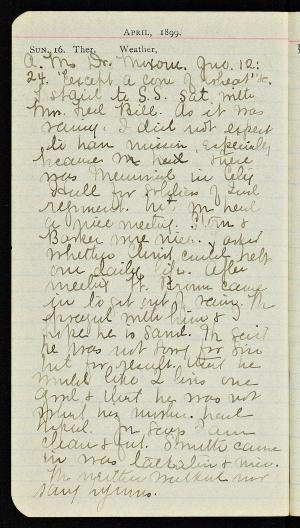 APRIL, 1899.
SUN. 16. Ther. Weather,
A.M. Dr. Jno. 12:
24. "except a corn of wheat" &c.
I staid to S.S. sat with
Mrs. Fred Bill. As it was
rainy. I did not expect
to have mission, especially
because there
was Memorial in City
Hall for soldiers of 2nd
regiment. but we had
a nice meeting. &
Barker were nice. I asked
whether Christ could help
our daily life. After
meeting Brown came
in to get out of rain. We
prayed with him &
hope he is saved. He said
he was not sorry for sin
but for result that he
would like 2 live one
good & that he was not
what his mother had
hoped. I am
clean & fat. Smith came
in was &
He neither walked nor
sang hymns.